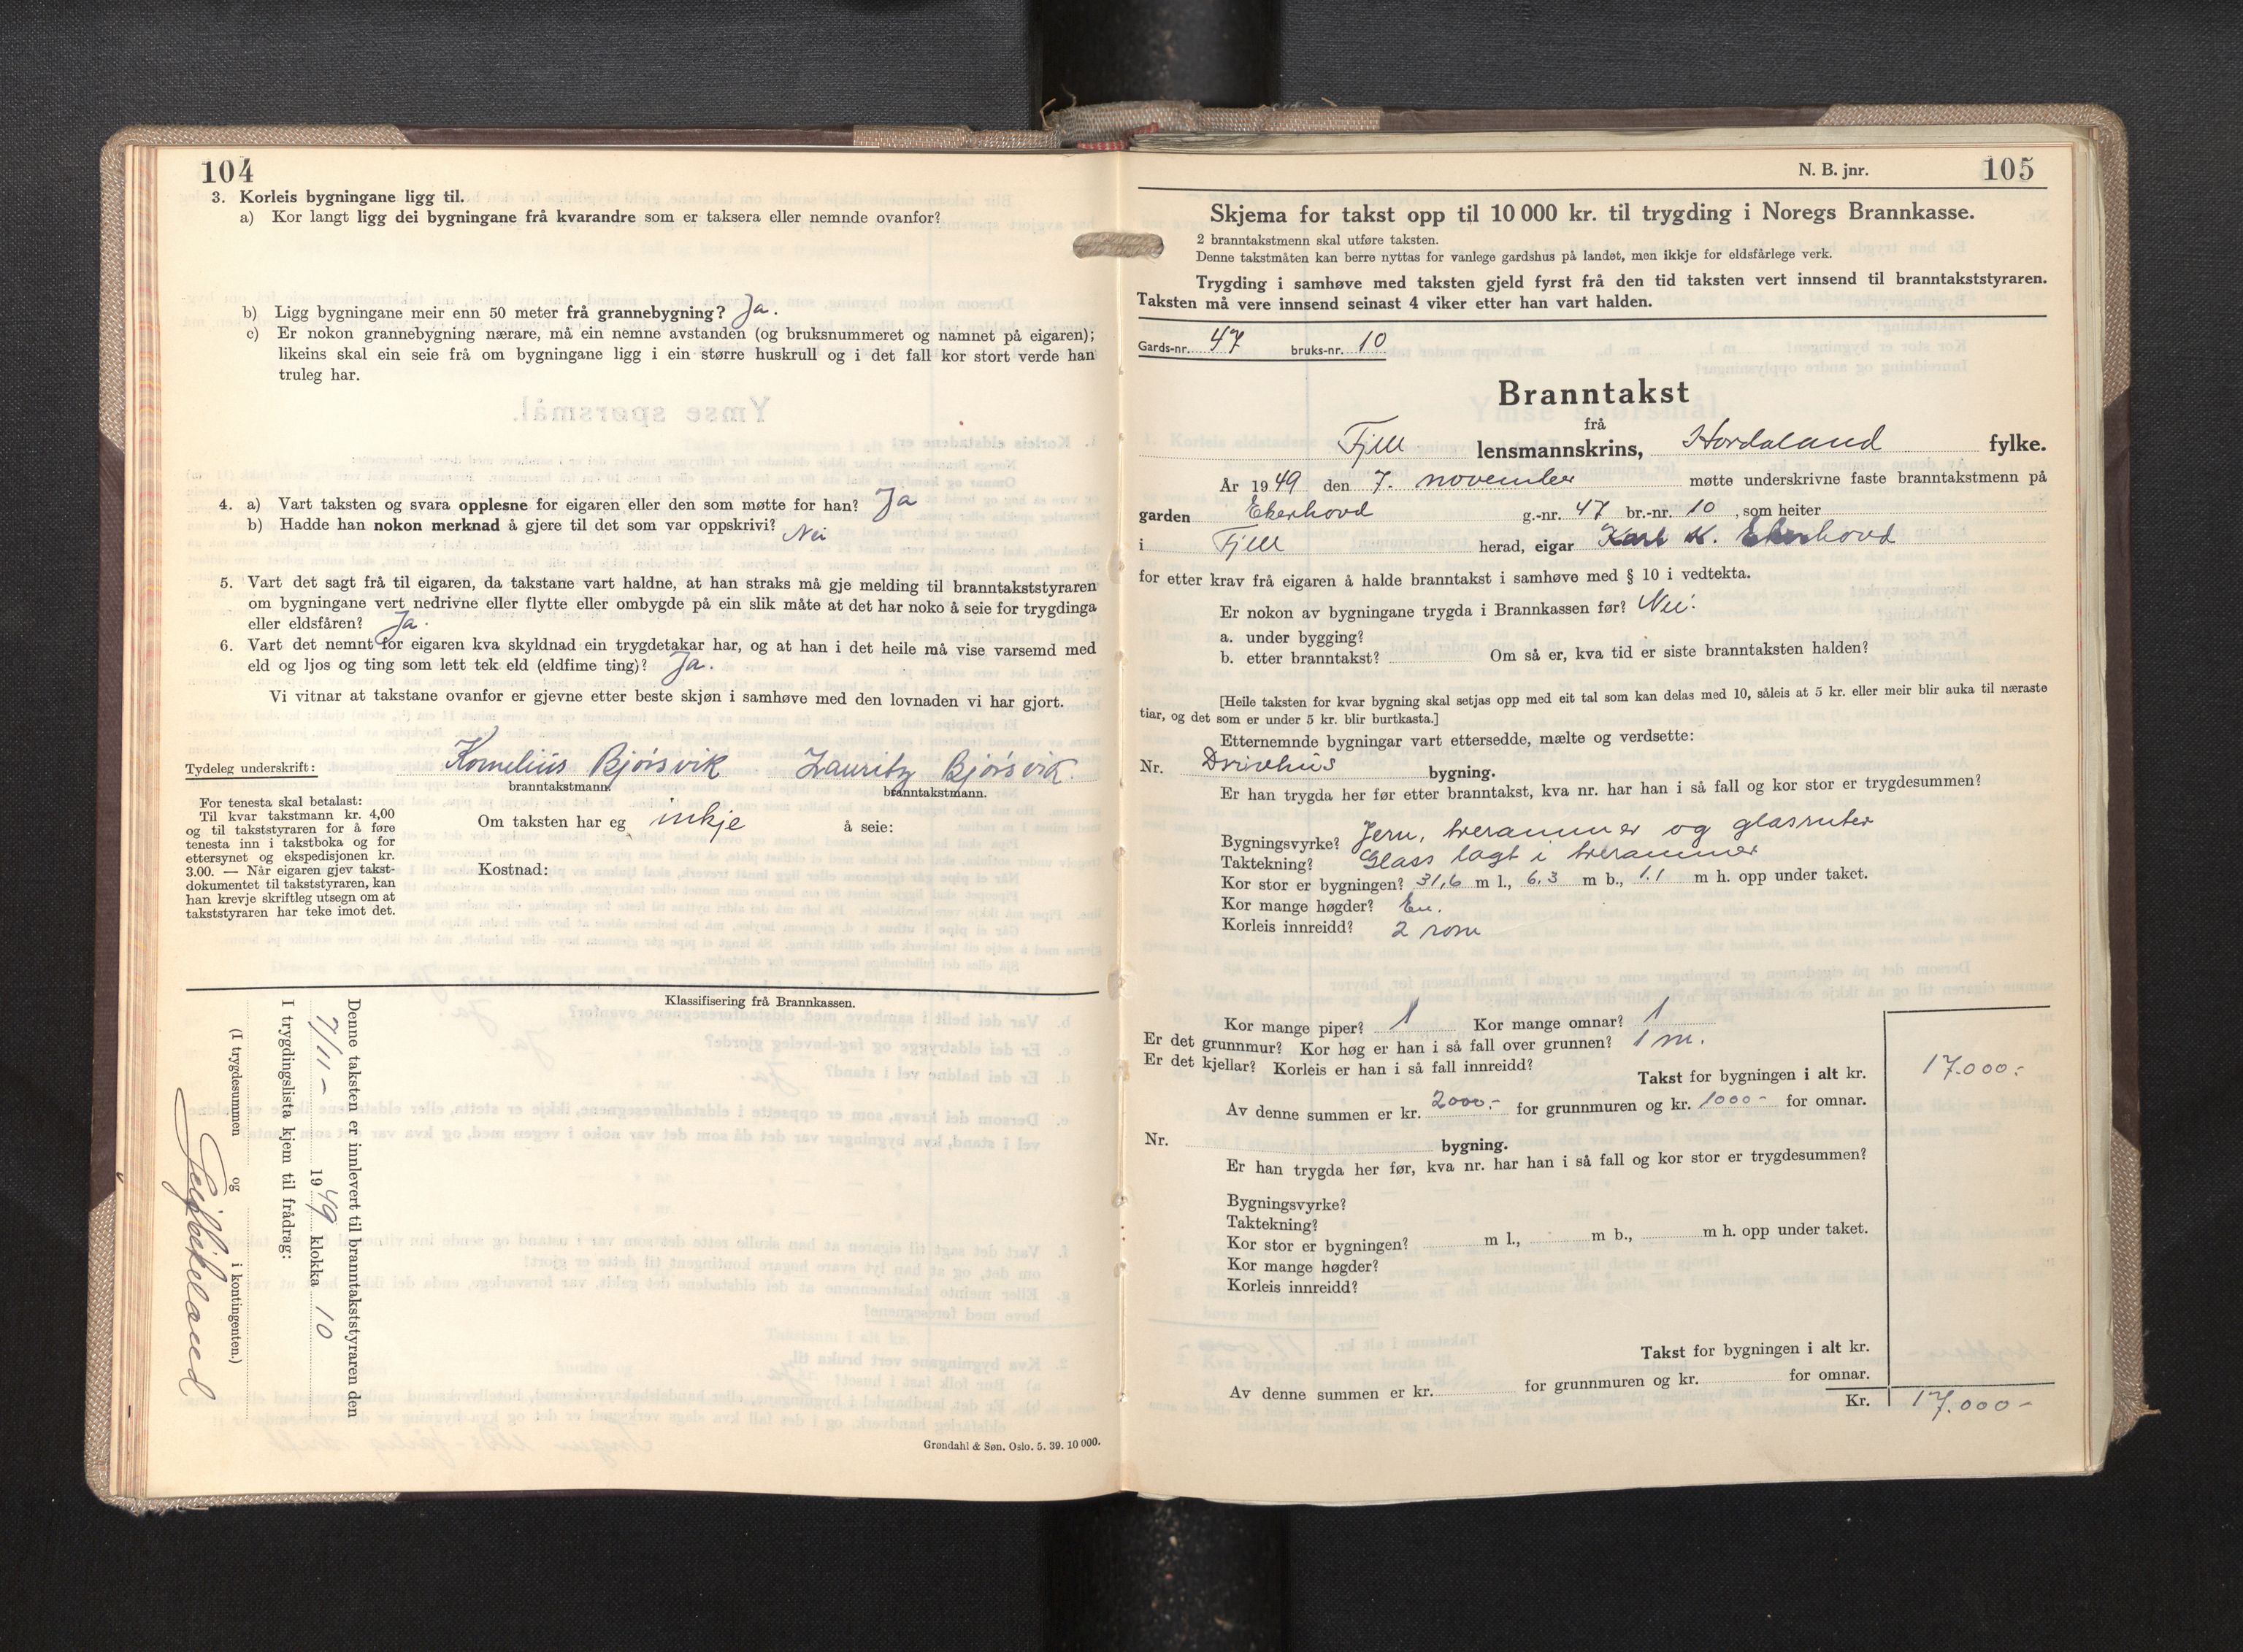 104
3. Korleis bygningane ligg til.
a) Kor langt ligg dei bygningane frå kvarandre som er taksera eller nemnde ovanfor?
b) Ligg bygningane meir enn 50 meter frå grannebygning? Ja.
c) Er nokon grannebygning nærare, må ein nemne avstanden (og bruksnummeret og namnet på eigaren);
likeins skal ein seie frå om bygningane ligg i ein større huskrull og i det fall kor stort verde han
truleg har.
4. a) Vart taksten og svara opplesne for eigaren eller den som møtte for han? Ja
b) Hadde han nokon merknad å gjere til det som var oppskrivi? Nei
5. Vart det sagt frå til eigaren, da takstane vart haldne, at han straks må gje melding til branntakststyraren
om bygningane vert nedrivne eller flytte eller ombygde på ein slik måte at det har noko å seie for trygdinga
eller eldsfåren? Ja.
6. Vart det nemnt for eigaren kva skyldnad ein trygdetakar har, og at han i det heile må vise varsemd med
eld og ljos og ting som lett tek eld (eldfime ting)? Ja.
Vi vitnar at takstane ovanfor er gjevne etter beste skjøn i samhøve med den lovnaden vi har gjort.
Tydeleg underskrift: Kornelius Bjørsvik Lauritz Bjørsvik.
branntakstmann. branntakstmann.
For tenesta skal betalast:
Til kvar takstmann kr. 4,00
og til takststyraren for å føre
tenesta inn i takstboka og for
ettersynet og ekspedisjonen kr.
3.00. — Når eigaren gjev takst-
dokumentet til takststyraren, kan
han krevje skriftleg utsegn om at
takststyraren har teke imot det.
Om taksten har eg inkje å seie:
Kostnad:
Klassifisering frå Brannkassen.
Denne taksten er innlevert til branntakststyraren den
7/11 - 1949 klokka 10
I trygdingslista kjem til frådrag:
(I trygdesummen og i kontingenten.)
Grøndahl & Søn. Oslo. 5. 39. 10 000.
N. B. jnr. 105
Skjema for takst opp til 10 000 kr. til trygding i Noregs Brannkasse.
2 branntakstmenn skal utføre taksten.
Denne takstmåten kan berre nyttas for vanlege gardshus på landet, men ikkje for eldsfårlege verk.
Trygding i samhøve med taksten gjeld fyrst frå den tid taksten vert innsend til branntakststyraren.
Taksten må vere innsend seinast 4 viker etter han vart halden.
Gards-nr. 47 bruks-nr. 10
Branntakst
frå
Fjell lensmannskrins, Hordaland fylke.
År 1949 den 7. november møtte underskrivne faste branntakstmenn på
garden Ekerhovd g.-nr. 47 br.-nr. 10, som heiter
i Fjell herad, eigar Karl K. Ekerhovd
for etter krav frå eigaren å halde branntakst i samhøve med § 10 i vedtekta.
Er nokon av bygningane trygda i Brannkassen før? Nei.
a. under bygging?
b. etter branntakst? Om så er, kva tid er siste branntaksten halden?
[Heile taksten for kvar bygning skal setjas opp med eit tal som kan delas med 10, såleis at 5 kr. eller meir blir auka til næraste
tiar, og det som er under 5 kr. blir burtkasta.]
Etternemnde bygningar vart ettersedde, mælte og verdsette:
Nr. Drivhus bygning.
Er han trygda her før etter branntakst, kva nr. har han i så fall og kor stor er trygdesummen?
Bygningsvyrke? Jern, trerammer og glasruter
Taktekning? Glass lagt i trerammer
Kor stor er bygningen? 31,6 m l., 6,3 m b., 1.1 m h. opp under taket.
Kor mange høgder? En.
Korleis innreidd? 2 rom
Kor mange piper? 1 Kor mange omnar? 1
Er det grunnmur? Kor høg er han i så fall over grunnen? 1 m.
Er det kjellar? Korleis er han i så fall innreidd?
Takst for bygningen i alt kr. 17.000.-
Av denne summen er kr. 2000.- for grunnmuren og kr. 1000- for omnar.
Nr. bygning.
Er han trygda her før, kva nr. har han i så fall og kor stor er trygdesummen?
Bygningsvyrke?
Taktekning?
Kor stor er bygningen? m l., m b., m h. opp under taket.
Kor mange høgder?
Korleis innreidd?
Takst for bygningen i alt kr.
Av denne summen er kr. for grunnmuren og kr. for omnar.
Kr. 17.000-